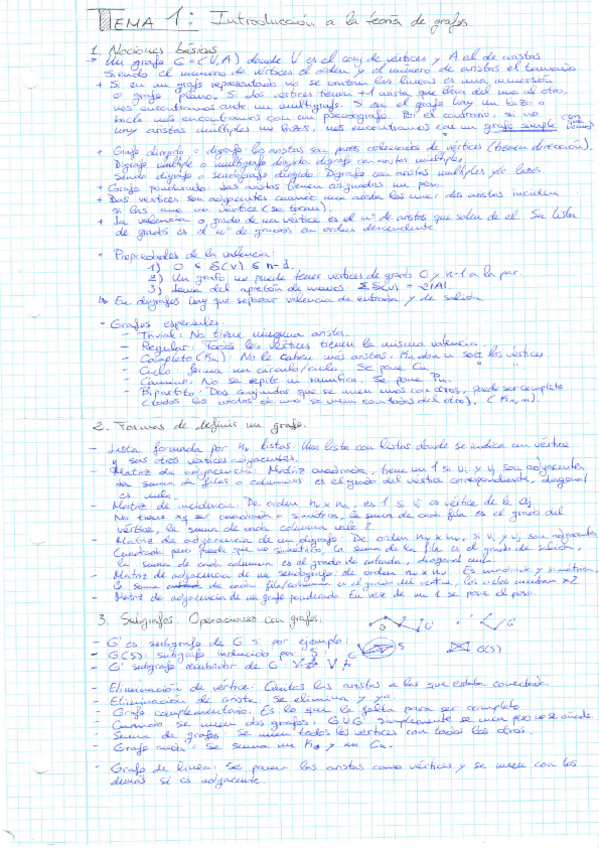 TEMA 1: Introducción a la teoría de grafos
1. Nociones básicas
→ Un grafo G=(V,A) donde V es el conj de vértices y A el de aristas
Siendo el número de vértices el orden y el número de aristas el tamaño
+ Si en un grafo representado no se cruzan las líneas es una inmersión
o grafo plano. Si dos vértices tienen +1 arista que lleva del uno al otro,
nos encontramos ante un multigrafo. Si en el grafo hay un lazo o
bucle nos encontramos con un pseudografo. Por el contrario, si no
hay aristas múltiples ni lazos, nos encontramos con un grafo simple
+ Grafo dirigido o digrafo: las aristas son pares ordenados de vértices (tienen dirección).
Digrafo múltiple o multigrafo dirigido: digrafo con aristas múltiples
dirigido: Digrafo con aristas múltiples y/o lazos
+ Grafo ponderado: Las aristas tienen asignados un peso.
+ Dos vértices son adyacentes cuando una arista los une; dos aristas inciden
si las une un vértice (se tocan).
+ La valencia o grado de un vértice es el nº de aristas que salen de él. Su lista
de grados es el nº de grados en orden descendente.
- Propiedades de la valencia:
1) 0 ≤ δ(v) ≤ n-1
2) Un grafo no puede tener vértices de grado 0 y n-1 a la par.
3) Lema del apretón de manos Σδ(v) = 2|A|
↳ En digrafos hay que separar valencia de entrada y de salida
- Grafos especiales:
- Trivial: No tiene ninguna arista.
- Regular: Todos los vértices tienen la misma valencia.
- Completo (Kn): No le caben más aristas. Kn, don n son los vértices.
- Ciclo: forma un círculo/ciclo. Se pone Cn
- Camino: No se repite ni ramifica. Se pone Pn.
- Bipartito: Dos conjuntos que se unen unos con otros, puede ser completo
(todos los vértices de uno se unen con todos del otro), (Kn,m).
2. Formas de definir un grafo.
- Lista formada por nv listas. Una lista con listas donde se indica un vértice
y sus otros vértices adyacentes.
- Matriz de adyacencia: Matriz cuadrada, tiene un 1 si vi y vj son adyacentes,
la suma de filas o columnas es el grado del vértice correspondiente, diagonal
es nula.
- Matriz de incidencia: De orden nv x na, es 1 si vi es vértice de la aj.
No tiene xq ser cuadrada o simétrica, la suma de cada fila es el grado del
vértice, la suma de cada columna vale 2
- Matriz de adyacencia de un digrafo: De orden nv x nv, si vi y vj son adyacentes
Cuadrada pero puede que no simétrica, la suma de la fila es el grado de salida,
la suma de cada columna es el grado de entrada, diagonal nula
- Matriz de adyacencia de un seudografo: de orden nv x nv. Es cuadrada y simétrica,
la suma de cada fila/columna es el grado del vértice, los ciclos cuentan x2
- Matriz de adyacencia de un grafo ponderado: En vez de un 1 se pone el peso
3. Subgrafos. Operaciones con grafos.
- G' es subgrafo de G si por ejemplo: G G'
- G(S): subgrafo inducido por S S G(S)
- G' subgrafo recubridor de G
- Eliminación de vértice: Quitas las aristas a las que estaba conectado.
- Eliminación de arista: Se elimina y ya
- Grafo complementario: Es lo que le falta para ser completo
- Cuando se unen dos grafos: G∪G' Simplemente se unen pero no se añade.
- Suma de grafos: Se unen todos los vértices con todos los otros.
- Grafo rueda: Se suma un K1 y un Cn.
- Grafo de línea: Se ponen las aristas como vértices y se unen con los
demás si es adyacente.